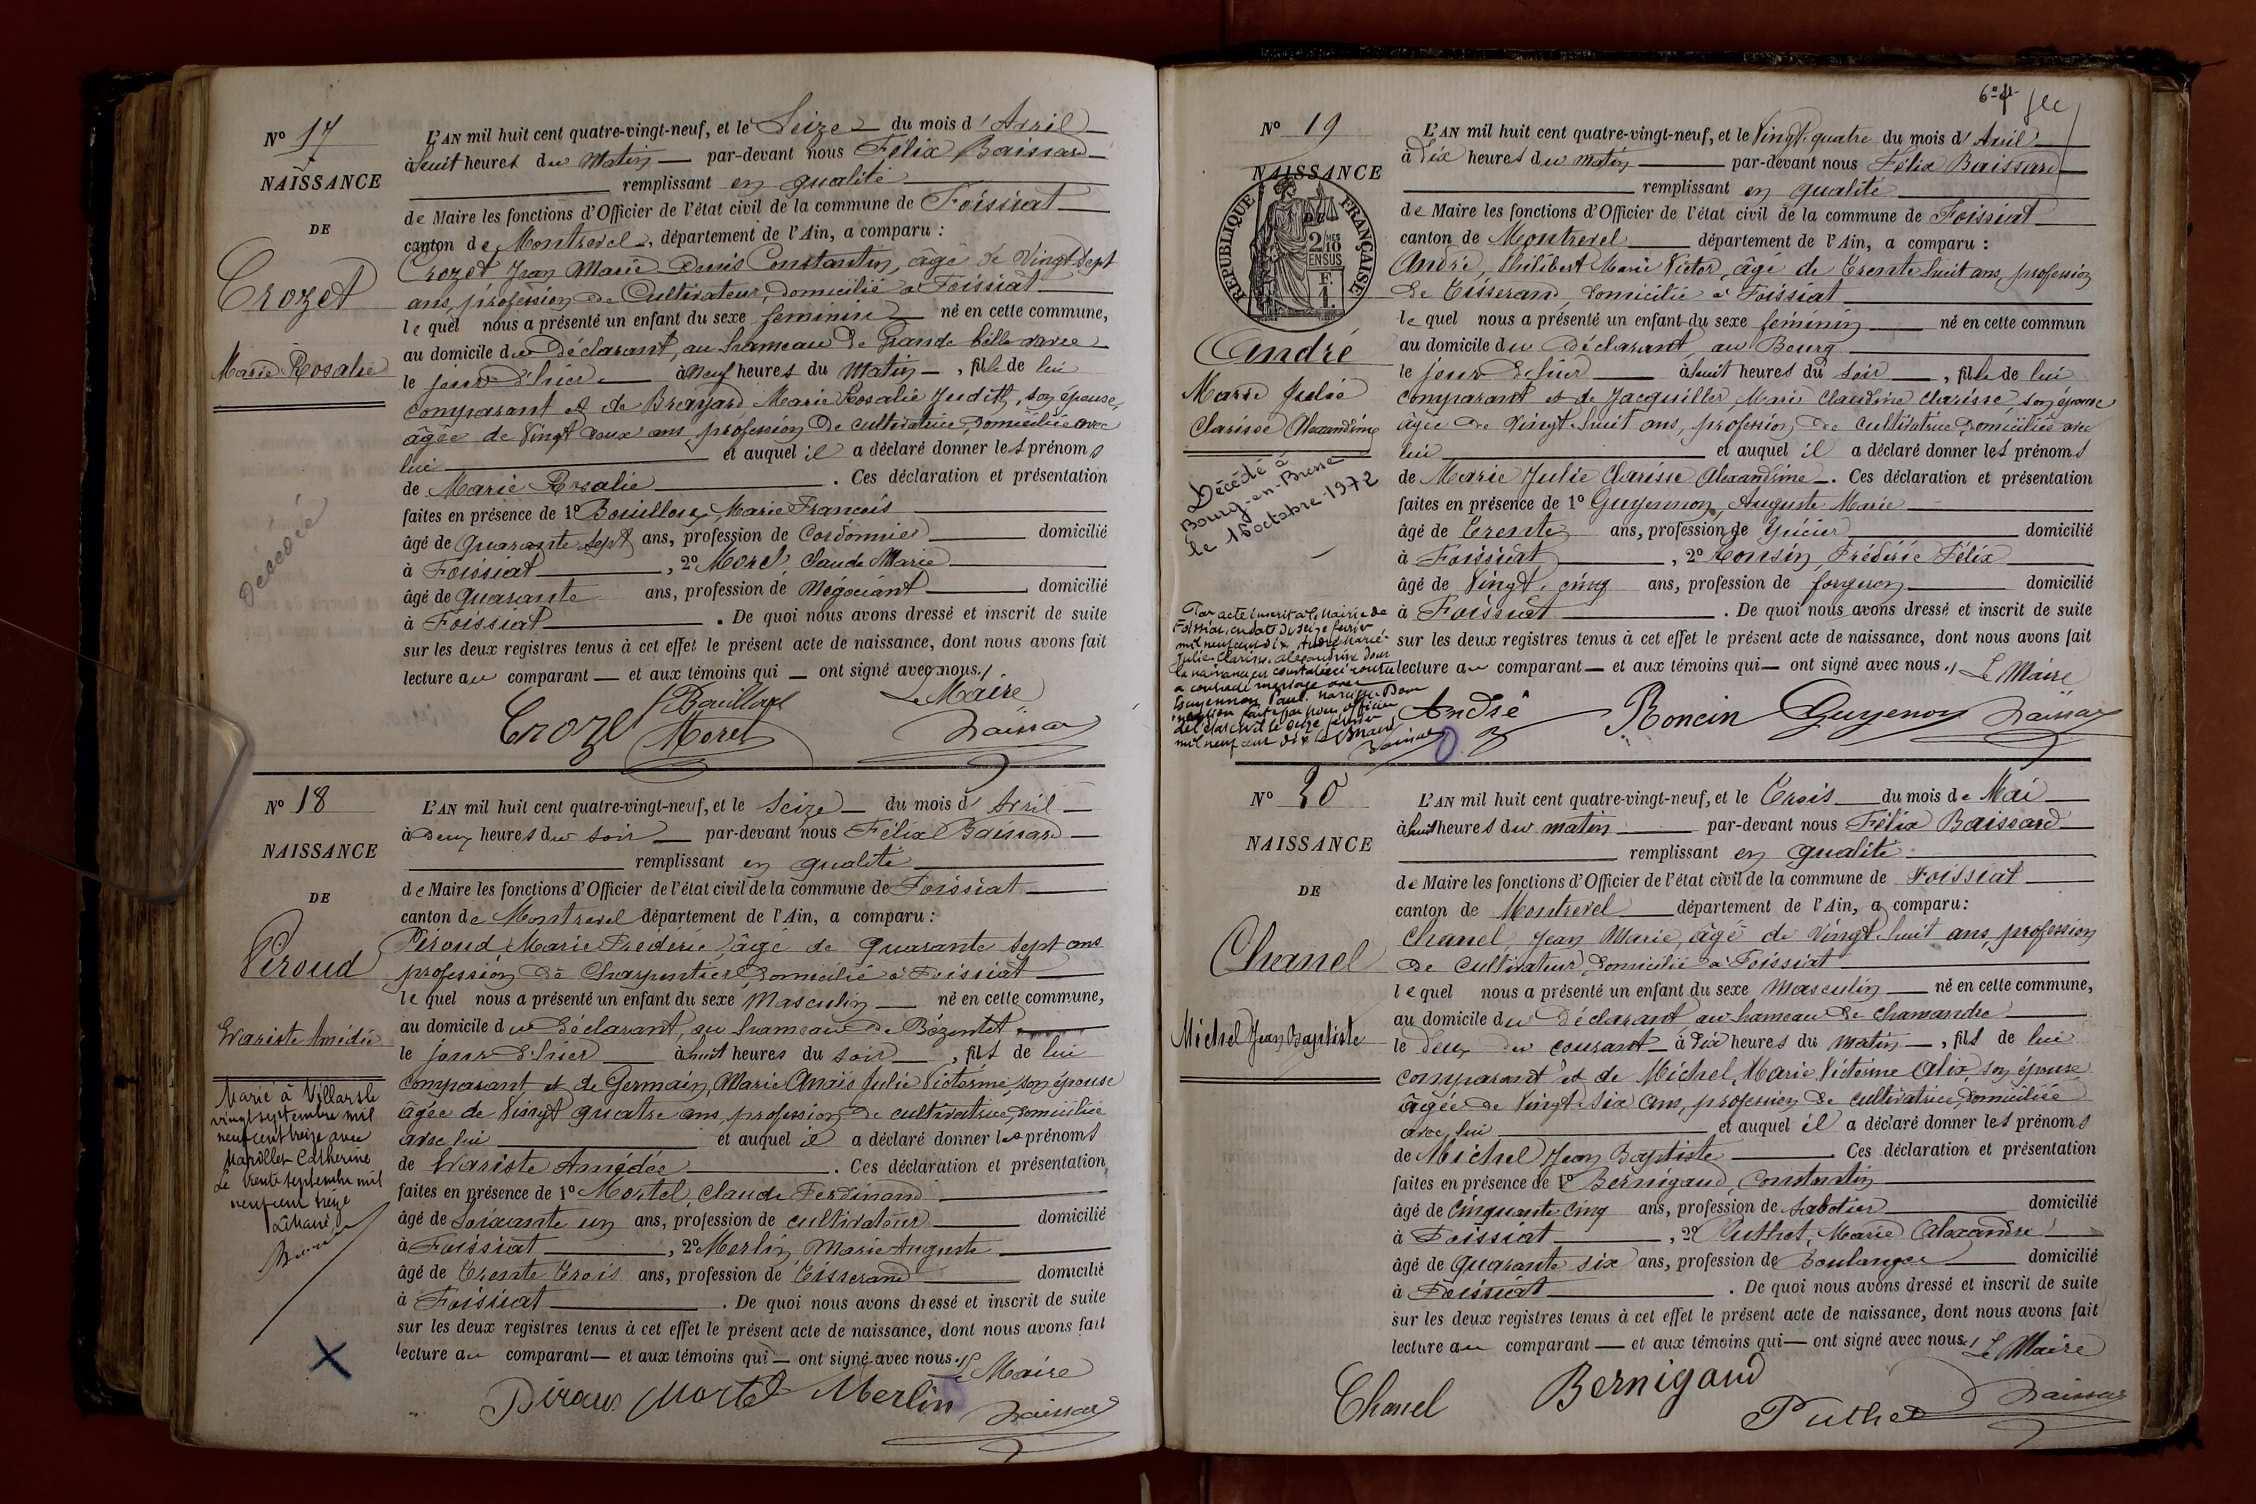 N° 17
NAISSANCE
DE
Crozet
Marie Rosalie
Décédée
L'AN mil huit cent quatre-vingt-neuf, et le Seize du mois d'Avril
à huit heures du matin par-devant nous Félix Baissard
remplissant en qualité
de Maire les fonctions d'Officier de l'état civil de la commune de Foissiat
canton de Montrevel, département de l'Ain, a comparu :
Crozet Jean Marie Denis Constantin, âgé de Vingt sept
ans, profession de Cultivateur, domicilié à Foissiat
le quel nous a présenté un enfant du sexe féminin né en cette commune,
au domicile du Déclarant, au hameau de Grande
le jour d'hier à neuf heures du matin, fille de lui
comparant et de Brayard Marie Rosalie Judith, son épouse,
âgée de Vingt deux ans, profession de cultivatrice, domiciliée avec
lui et auquel il a déclaré donner les prénoms
de Marie Rosalie. Ces déclaration et présentation
faites en présence de 1° Bouilloux, Marie François
âgé de quarante sept ans, profession de Cordonnier domicilié
à Foissiat, 2° Morel, Claude Marie
âgé de quarante ans, profession de Négociant domicilié
à Foissiat. De quoi nous avons dressé et inscrit de suite
sur les deux registres tenus à cet effet le présent acte de naissance, dont nous avons fait
lecture au comparant et aux témoins qui ont signé avec nous./
Le Maire
Crozet Bouilloux
Morel Baissard
N° 18
NAISSANCE
DE
Péroud
Evariste Amédée
Marié à Villars le
vingt septembre mil
neuf cent treize avec
Catherine
Le trente septembre mil
neuf cent treize
Le Maire
L'AN mil huit cent quatre-vingt-neuf, et le Seize du mois d'Avril
à Deux heures du soir par-devant nous Félix Baissard
remplissant en qualité
de Maire les fonctions d'Officier de l'état civil de la commune de Foissiat
canton de Montrevel département de l'Ain, a comparu :
Péroud Marie Frédéric, âgé de quarante sept ans
profession de Charpentier, domicilié à Foissiat
le quel nous a présenté un enfant du sexe Masculin né en cette commune,
au domicile du Déclarant, au hameau de Bézentet
le jour d'hier à huit heures du soir, fils de lui
comparant et de Germain, Marie Anaïs Julie Victorine, son épouse
âgée de Vingt quatre ans, profession de cultivatrice, domiciliée
avec lui et auquel il a déclaré donner les prénoms
de Evariste Amédée. Ces déclaration et présentation
faites en présence de 1° Mortel, Claude Ferdinand
âgé de Soixante un ans, profession de cultivateur domicilié
à Foissiat, 2° Merlin Marie Auguste
âgé de Trente Trois ans, profession de Tisserand domicilié
à Foissiat. De quoi nous avons dressé et inscrit de suite
sur les deux registres tenus à cet effet le présent acte de naissance, dont nous avons fait
lecture au comparant et aux témoins qui ont signé avec nous./
Le Maire
Péroud Mortel Merlin Baissard
N° 19
NAISSANCE
DE
RÉPUBLIQUE FRANÇAISE
2/10
EN SUS
F.
1.
André
Marie Julie
Clarisse Alexandrine
Décédé à
Bourg-en-Bresse
le 16 octobre 1972
Par acte inscrit à la Mairie de
Foissiat, en date du seize février
mil neuf cent dix, André Marie
Julie Clarisse Alexandrine dont
la naissance est constatée ci-contre
a contracté mariage avec
Guyennon Paul Narcisse. Dont
mention faite par nous officier
de l'état civil le seize février
mil neuf cent dix Le Maire
L'AN mil huit cent quatre-vingt-neuf, et le Vingt quatre du mois d'Avril
à Dix heures du matin par-devant nous Félix Baissard
remplissant en qualité
de Maire les fonctions d'Officier de l'état civil de la commune de Foissiat
canton de Montrevel département de l'Ain, a comparu :
André, Philibert Marie Victor, âgé de Trente huit ans, profession
de Tisserand, domicilié à Foissiat
le quel nous a présenté un enfant du sexe féminin né en cette commun
au domicile du déclarant, au Bourg
le jour d'hier à huit heures du soir, fille de lui
comparant et de Jacquiller, Marie Claudine Clarisse, son épouse
âgée de Vingt huit ans, profession de cultivatrice, domiciliée avec
lui et auquel il a déclaré donner les prénoms
de Marie Julie Clarisse Alexandrine. Ces déclaration et présentation
faites en présence de 1° Guyennon, Auguste Marie
âgé de Trente ans, profession de Epicier domicilié
à Foissiat, 2° Roncin, Frédéric Félix
âgé de Vingt cinq ans, profession de forgeron domicilié
à Foissiat. De quoi nous avons dressé et inscrit de suite
sur les deux registres tenus à cet effet le présent acte de naissance, dont nous avons fait
lecture au comparant et aux témoins qui ont signé avec nous./ Le Maire
André Roncin Guyenon Baissard
N° 20
NAISSANCE
DE
Chanel
Michel Jean Baptiste
L'AN mil huit cent quatre-vingt-neuf, et le Trois du mois de Mai
à huit heures du matin par-devant nous Félix Baissard
remplissant en qualité
de Maire les fonctions d'Officier de l'état civil de la commune de Foissiat
canton de Montrevel département de l'Ain, a comparu :
Chanel, Jean Marie, âgé de Vingt huit ans, profession
de cultivateur, domicilié à Foissiat
le quel nous a présenté un enfant du sexe Masculin né en cette commune,
au domicile du Déclarant au hameau de Chamandre
le deux du courant à Dix heures du matin, fils de lui
comparant et de Michel, Marie Victorine Alix, son épouse
âgée de Vingt six ans, profession de cultivatrice, domiciliée
avec lui et auquel il a déclaré donner les prénoms
de Michel Jean Baptiste. Ces déclaration et présentation
faites en présence de 1° Bernigaud, Constantin
âgé de Cinquante cinq ans, profession de Sabotier domicilié
à Foissiat, 2° Puthet, Marie Alexandre
âgé de Quarante six ans, profession de Boulanger domicilié
à Foissiat. De quoi nous avons dressé et inscrit de suite
sur les deux registres tenus à cet effet le présent acte de naissance, dont nous avons fait
lecture au comparant et aux témoins qui ont signé avec nous./ Le Maire
Chanel Bernigaud Puthet Baissard